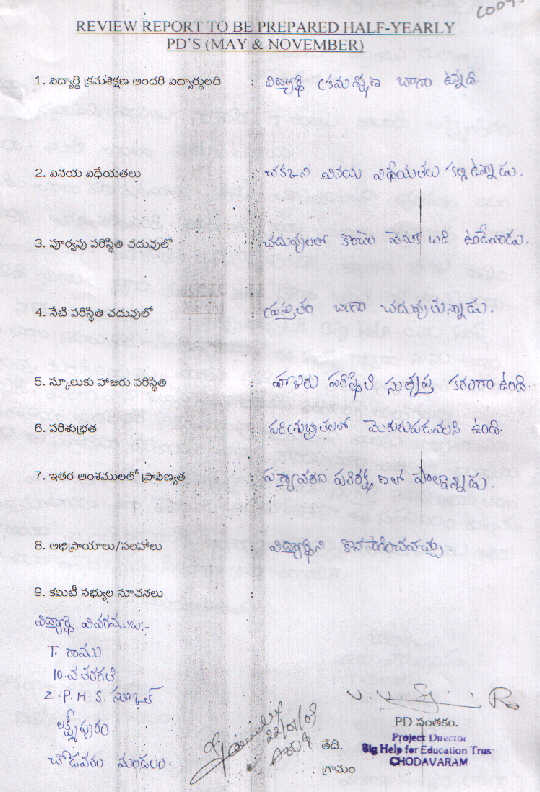 REVIEW REPORT TO BE PREPARED HALF-YEARLY
PD'S (MAY & NOVEMBER)
1. విద్యార్థి క్రమశిక్షణ అందరి విద్యార్థులది : విద్యార్థి క్రమశిక్షణ బాగా ఉన్నది
2. వినయ విధేయతలు : చక్కని వినయ విధేయతలు కల్గి ఉన్నాడు.
3. పూర్వపు పరిస్థితి చదువులో : చదువులలో కొంచెం వెనుకబడి ఉండేవాడు.
4. నేటి పరిస్థితి చదువులో : ప్రస్తుతం బాగా చదువుతున్నాడు.
5. స్కూలుకు హాజరు పరిస్థితి : హాజరు పరిస్థితి సంతృప్తి కరంగా ఉంది.
6. పరిశుభ్రత : పరిశుభ్రతలో మెరుగుపడవలసి ఉంది.
7. ఇతర అంశములలో ప్రావీణ్యత : పర్యావరణ పరిరక్షణలో పాల్గొన్నాడు.
8. అభిప్రాయాలు/సలహాలు : విద్యార్థిని కొనసాగించవచ్చు.
9. కమిటీ సభ్యుల సూచనలు :
విద్యార్థి వివరములు:-
T. రాము
10వ తరగతి
Z.P.H.S. స్కూల్
లక్ష్మీపురం
చోడవరం మండలం.
22/01/09
తేది.
గ్రామం
PD సంతకం.
Project Director
Big Help for Education Trust
CHODAVARAM